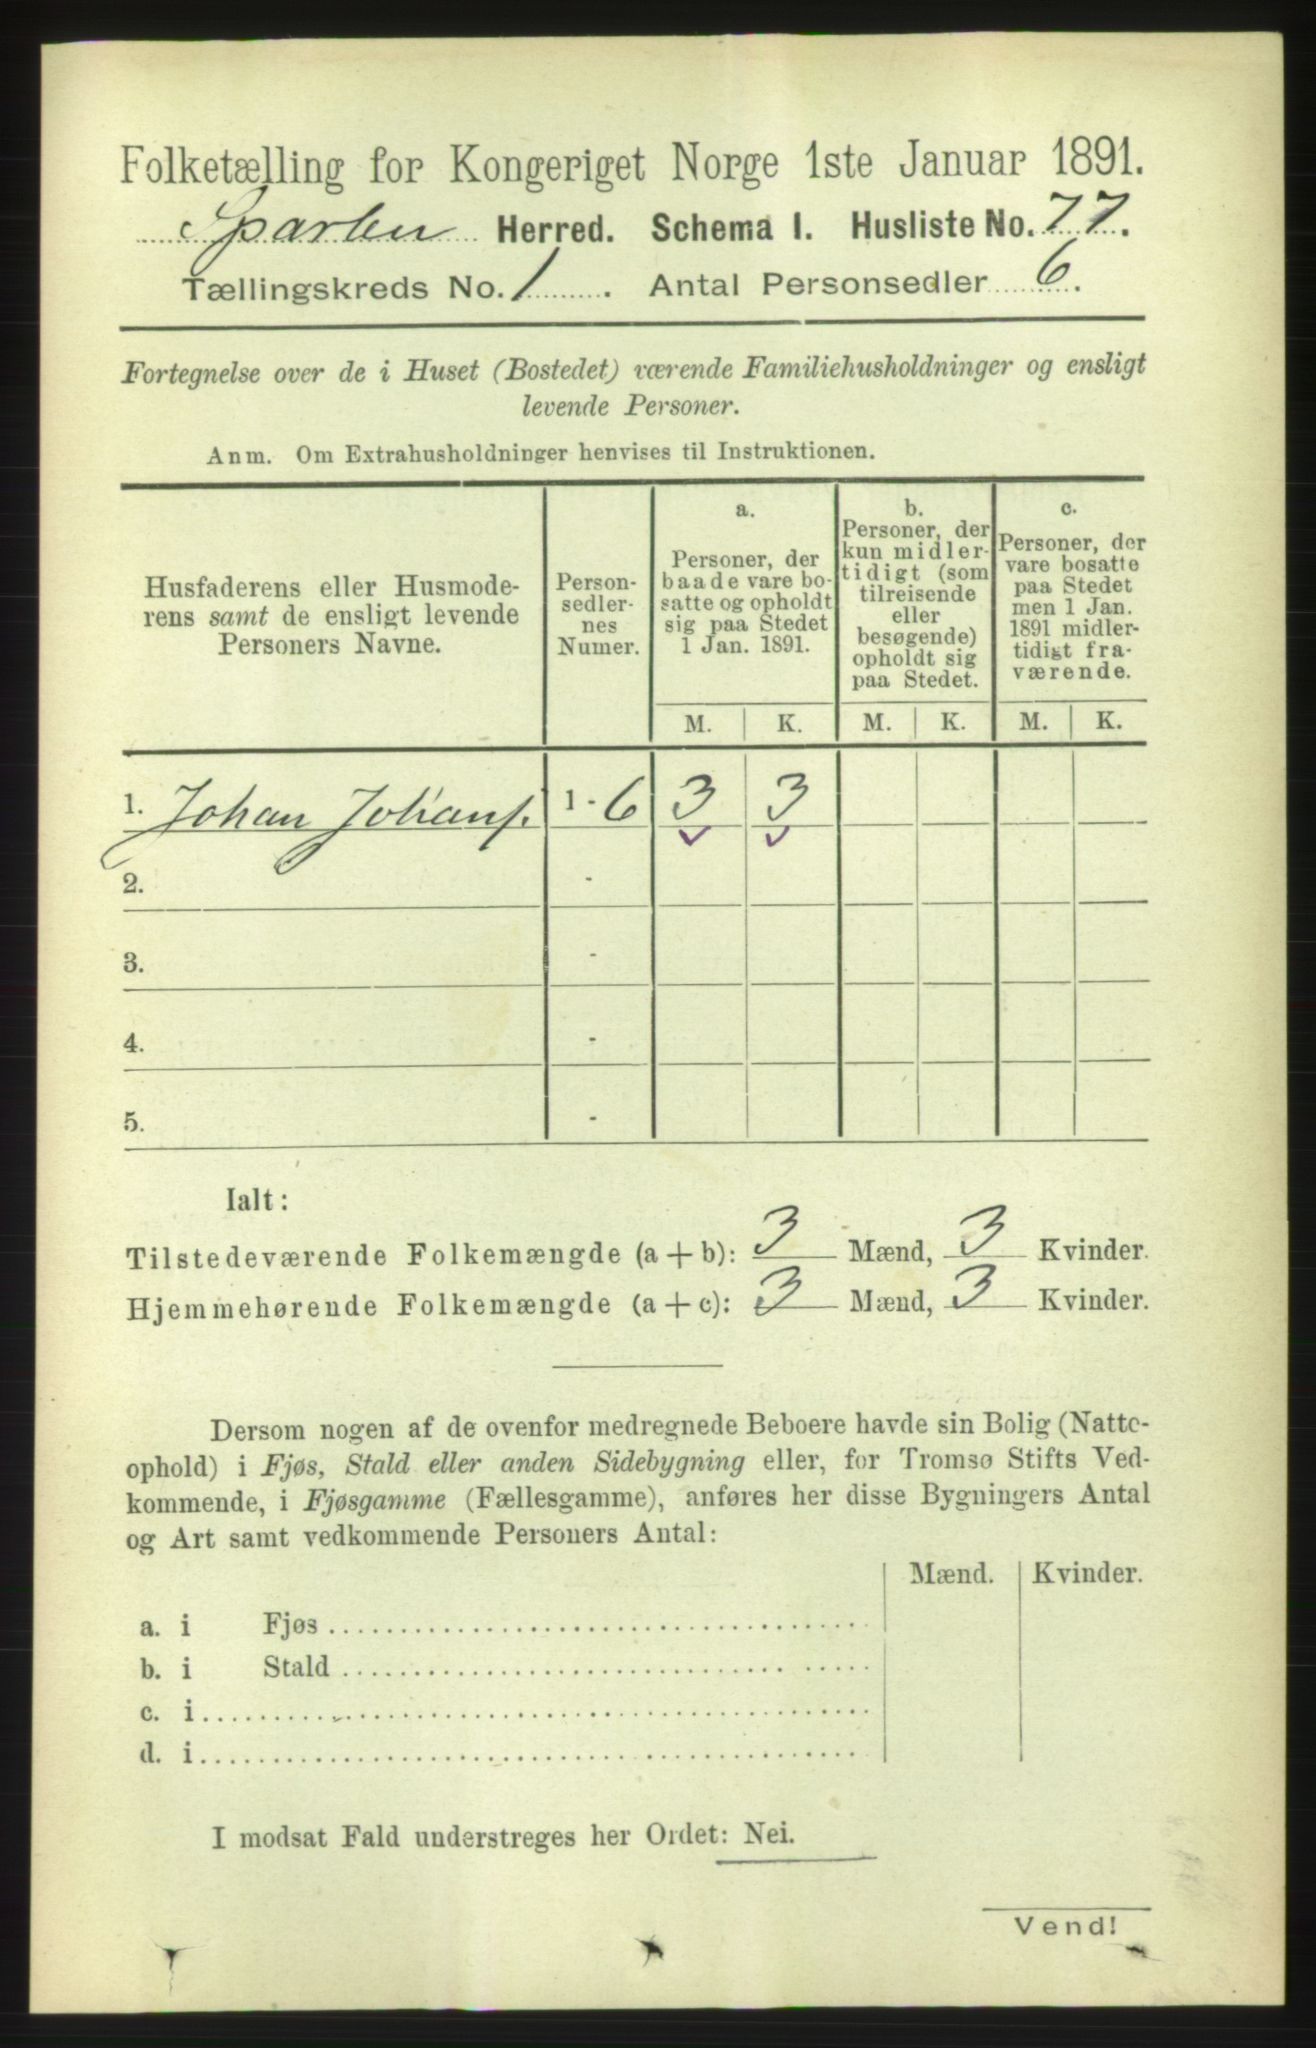 Folketælling for Kongeriget Norge 1ste Januar 1891.
Sparbu Herred. Schema I. Husliste No. 77.
Tællingskreds No. 1. Antal Personsedler 6.
Fortegnelse over de i Huset (Bostedet) værende Familiehusholdninger og ensligt
levende Personer.
Anm. Om Extrahusholdninger henvises til Instruktionen.
Husfaderens eller Husmode-
rens samt de ensligt levende
Personers Navne.
Person-
sedler-
nes
Numer.
a.
Personer, der
baade vare bo-
satte og opholdt
sig paa Stedet
1 Jan. 1891.
b.
Personer, der
kun midler-
tidigt (som
tilreisende
eller
besøgende)
opholdt sig
paa Stedet.
c.
Personer, der
vare bosatte
paa Stedet
men 1 Jan.
1891 midler-
tidigt fra-
værende.
M. K. M. K. M. K.
1. Johan Johans. 1 - 6 3 3
2. -
3. -
4. -
5. -
Ialt:
Tilstedeværende Folkemængde (a + b): 3 Mænd, 3 Kvinder.
Hjemmehørende Folkemængde (a + c): 3 Mænd, 3 Kvinder.
Dersom nogen af de ovenfor medregnede Beboere havde sin Bolig (Natte-
ophold) i Fjøs, Stald eller anden Sidebygning eller, for Tromsø Stifts Ved-
kommende, i Fjøsgamme (Fællesgamme), anføres her disse Bygningers Antal
og Art samt vedkommende Personers Antal:
Mænd. Kvinder.
a. i Fjøs
b. i Stald
c. i
d. i
I modsat Fald understreges her Ordet: Nei.
Vend!